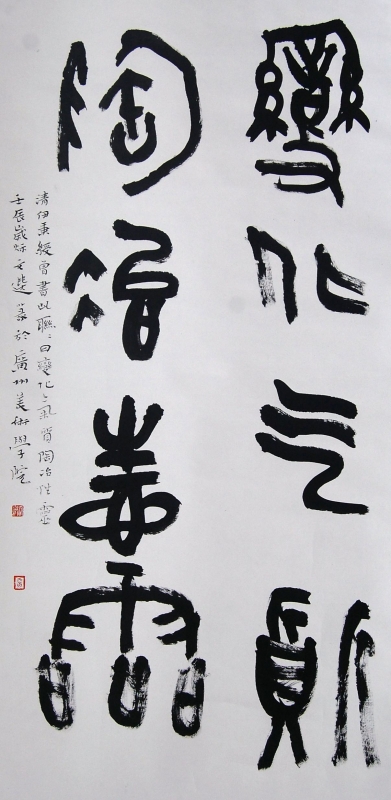 變化气質
陶冶性靈
清伊秉綬曾書此聯：曰變化气質陶冶性靈
壬辰歲 文選篆於廣州美術學院